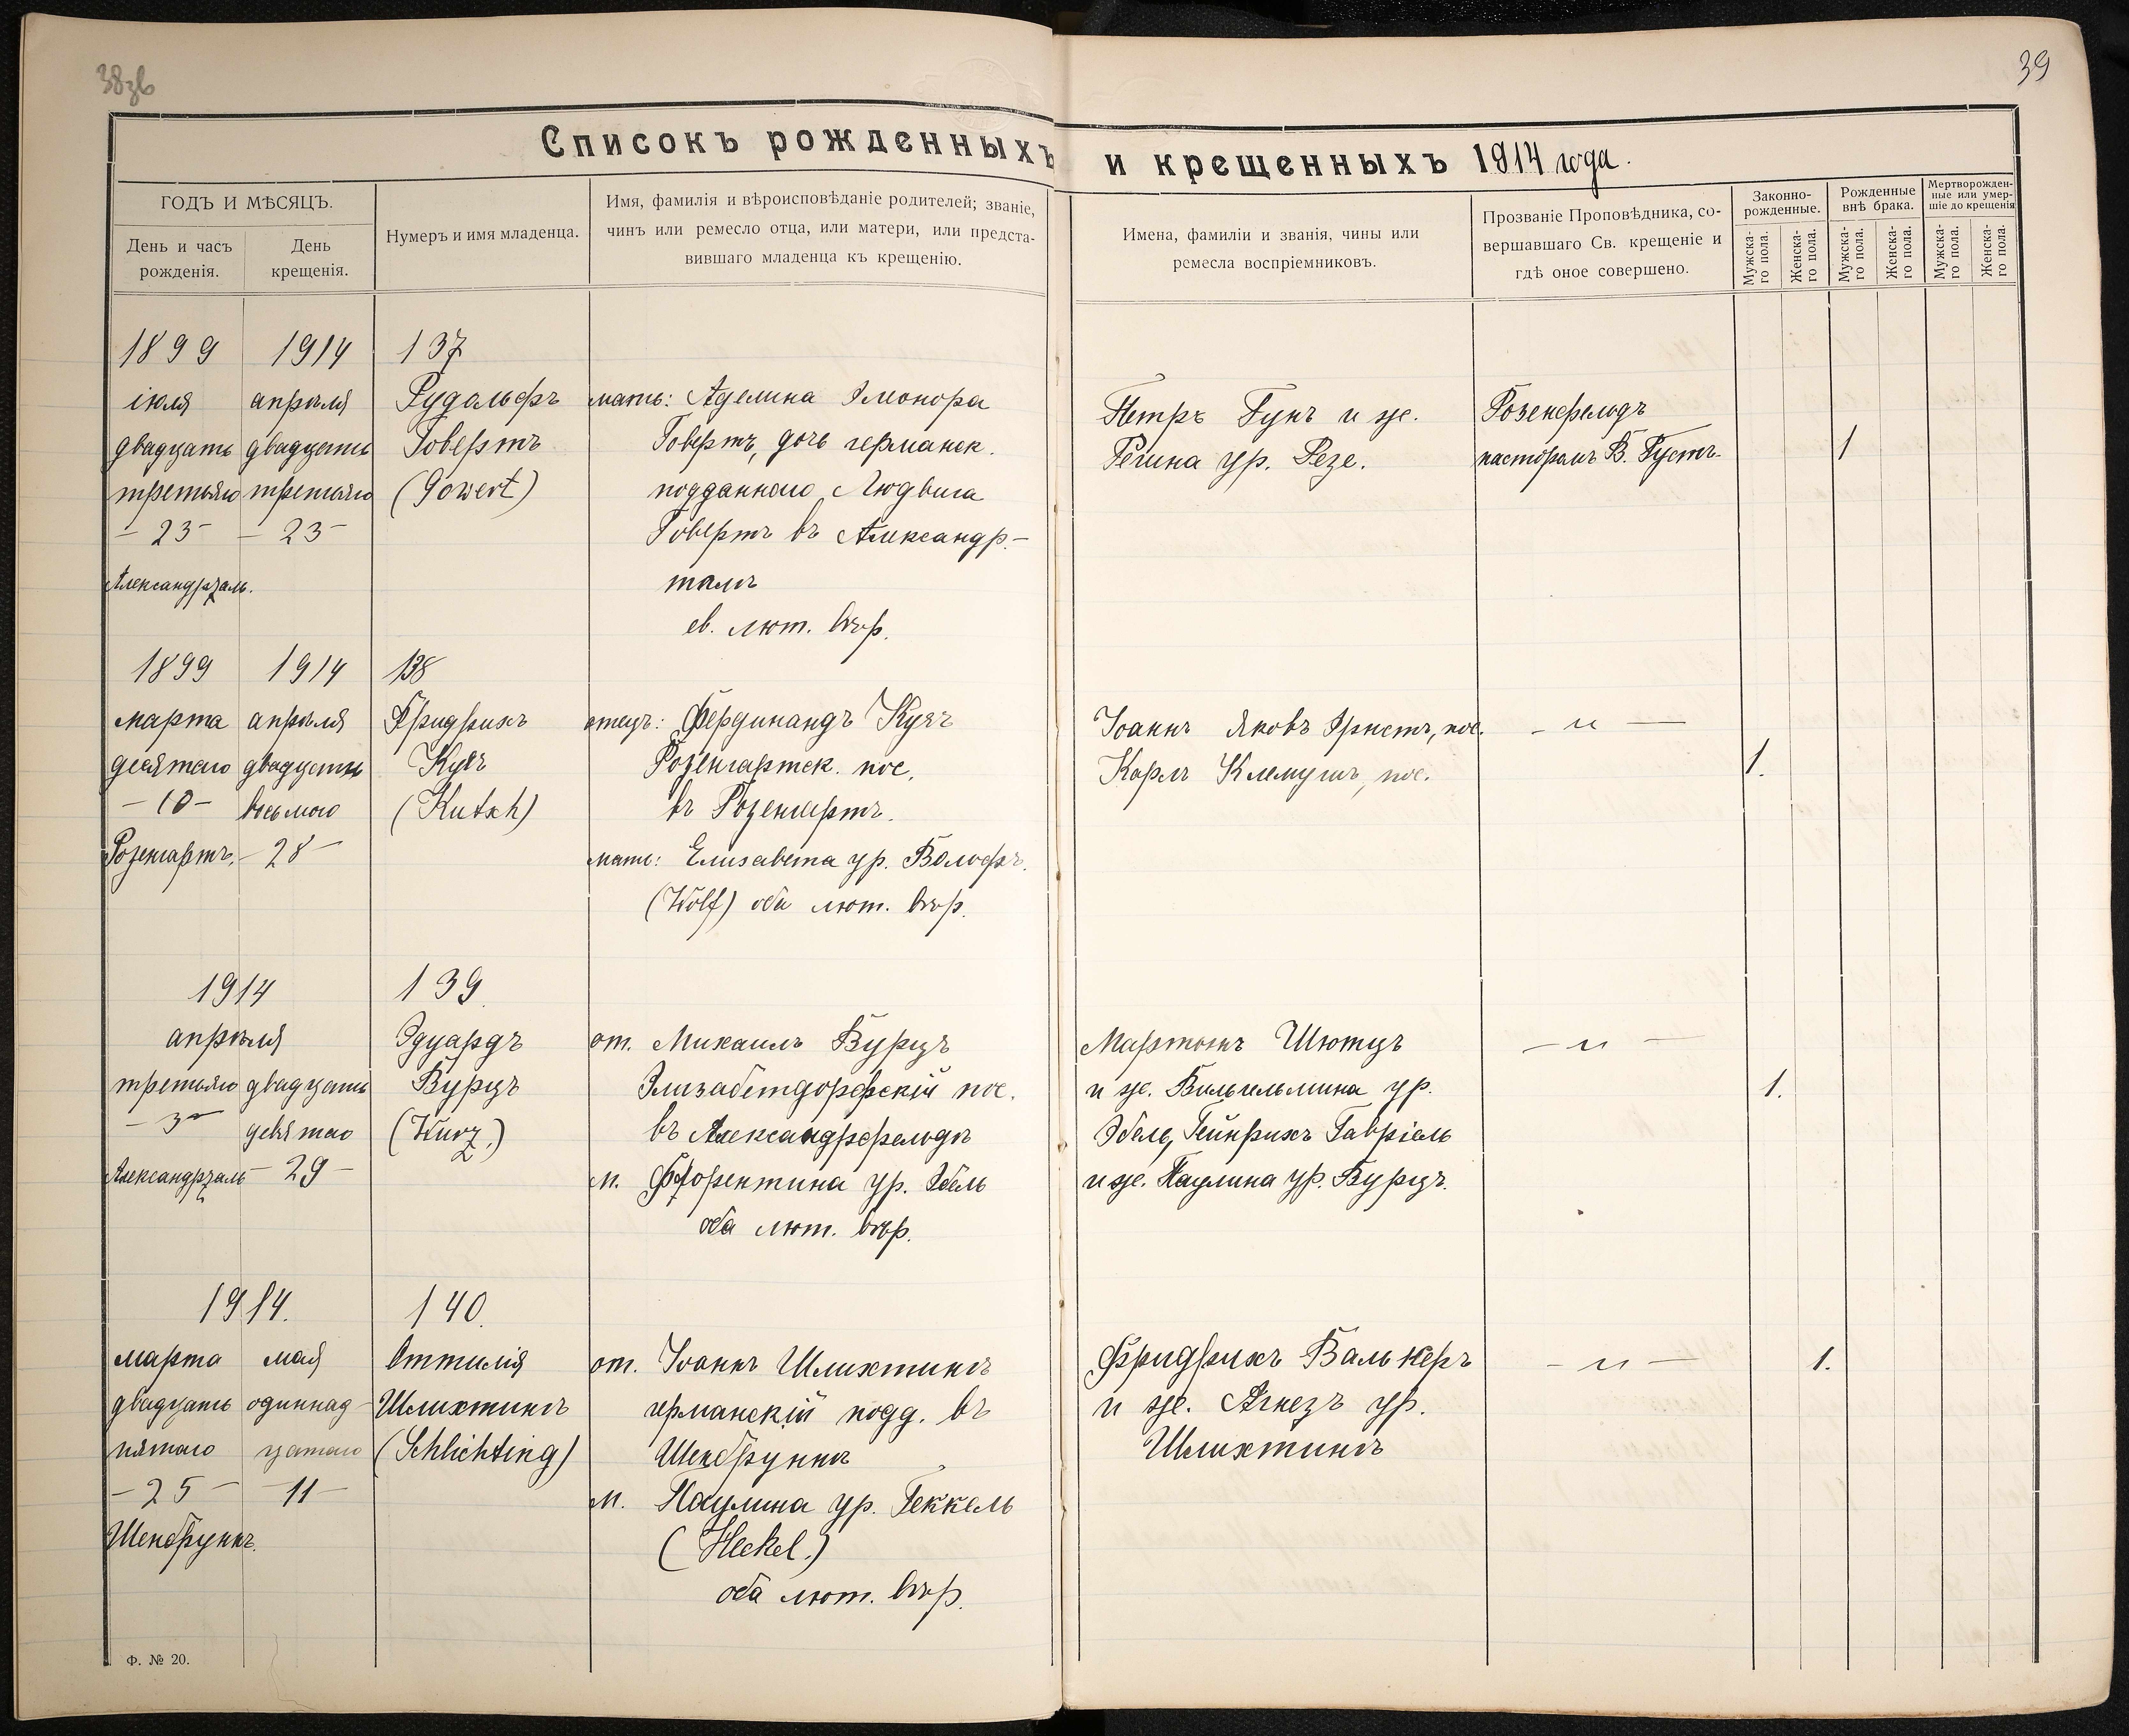 38 зв
39
Списокъ рожденныхъ и крещенныхъ 1914 года.
ГОДЪ И МѢСЯЦЪ.
День и часъ рожденія.
День крещенія.
Нумеръ и имя младенца.
Имя, фамилія и вѣроисповѣданіе родителей; званіе,
чинъ или ремесло отца, или матери, или предста-
вившаго младенца къ крещенію.
Имена, фамиліи и званія, чины или
ремесла воспріемниковъ.
Прозваніе Проповѣдника, со-
вершавшаго Св. крещеніе и
гдѣ оное совершено.
Законно-
рожденные.
Рожденные
внѣ брака.
Мертворожден-
ные или умер-
шіе до крещенія
Мужска-
го пола.
Женска-
го пола.
Мужска-
го пола.
Женска-
го пола.
Мужска-
го пола.
Женска-
го пола.
1899
іюля
двадцать
третьяго
- 23 -
Александрталь.
1914
апрѣля
двадцать
третьяго
- 23 -
137
Рудольфъ
Говертъ
(Gowert)
мать: Аделина Элеонора
Говертъ, дочь германск.
подданнаго Людвига
Говертъ въ Александр-
талѣ
ев. лют. вѣр.
Петръ Гунъ и же.
Регина ур. Резе.
Розенфельдъ
пасторомъ В. Густъ
1
1899
марта
десятаго
- 10 -
Розенгартъ.
1914
апрѣля
двадцать
восьмого
- 28 -
138
Фридрихъ
Кучъ
(Kutsch)
отецъ: Фердинандъ Кучъ
Розенгартск. пос.
въ Розенгартъ.
мать: Елисавета ур. Вольфъ.
(Wolf) оба лют. вѣр.
Іоаннъ Яковъ Эрнстъ, пос.
Карлъ Клемушъ, пос.
- и -
1.
1914
апрѣля
третьяго
- 3 -
Александрталь
двадцать
девятаго
- 29 -
139
Эдуардъ
Вурцъ
(Wurz.)
от. Михаилъ Вурцъ
Элизабетдорфскій пос.
въ Александрфельдѣ
м. Флорентина ур. Эбель
оба лют. вѣр.
Мартынъ Шютцъ
и же. Вильгельмина ур.
Эбель, Гейнрихъ Гавріель
и же. Паулина ур. Вурцъ.
- и -
1.
1914.
марта
двадцать
пятаго
- 25 -
Шенбруннъ.
мая
одиннад-
цатаго
- 11 -
140.
Оттилія
Шлихтингъ
(Schlichting)
от. Іоаннъ Шлихтингъ
германскій подд. въ
Шенбруннѣ
м. Паулина ур. Геккель
(Heckel.)
оба лют. вѣр.
Фридрихъ Валькеръ
и же. Агнезъ ур.
Шлихтингъ
- и -
1.
Ф. № 20.